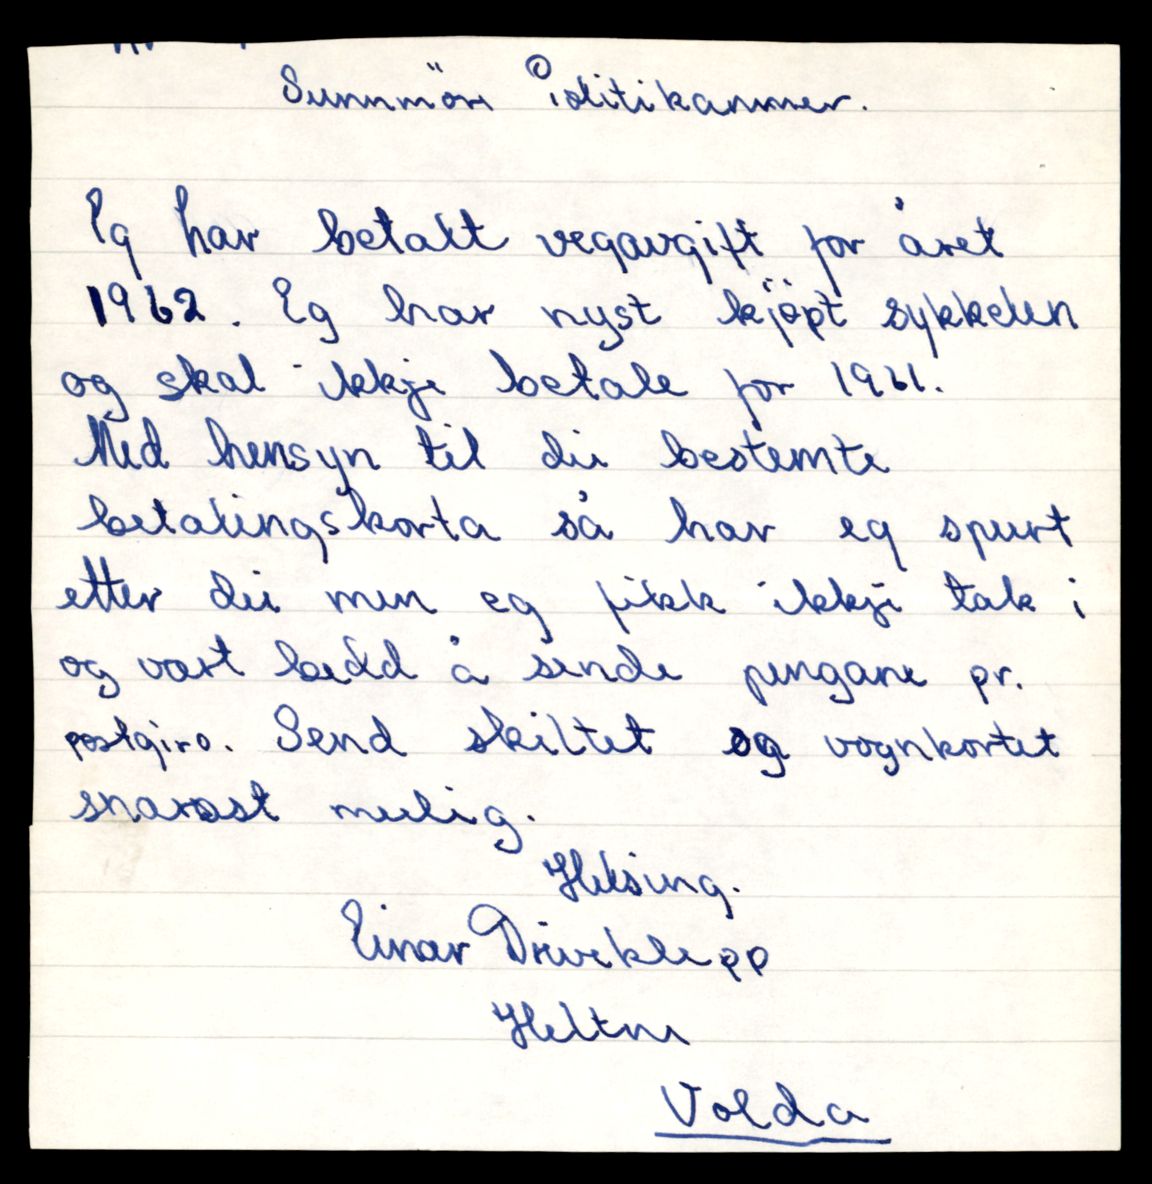 Sunnmöre Politikammer.
Eg har betalt vegavgift for året
1962. Eg har nyst kjöpt sykkelen
og skal ikkje betale for 1961.
Med hensyn til dei bestemte
betalingskorta så har eg spurt
etter dei men eg fikk ikkje tak i
og vart bedd å sende pengane pr.
postgiro. Send skiltet og vognkortet
snarast mulig.
Helsing.
Einar Driveklepp
Heltne
Volda